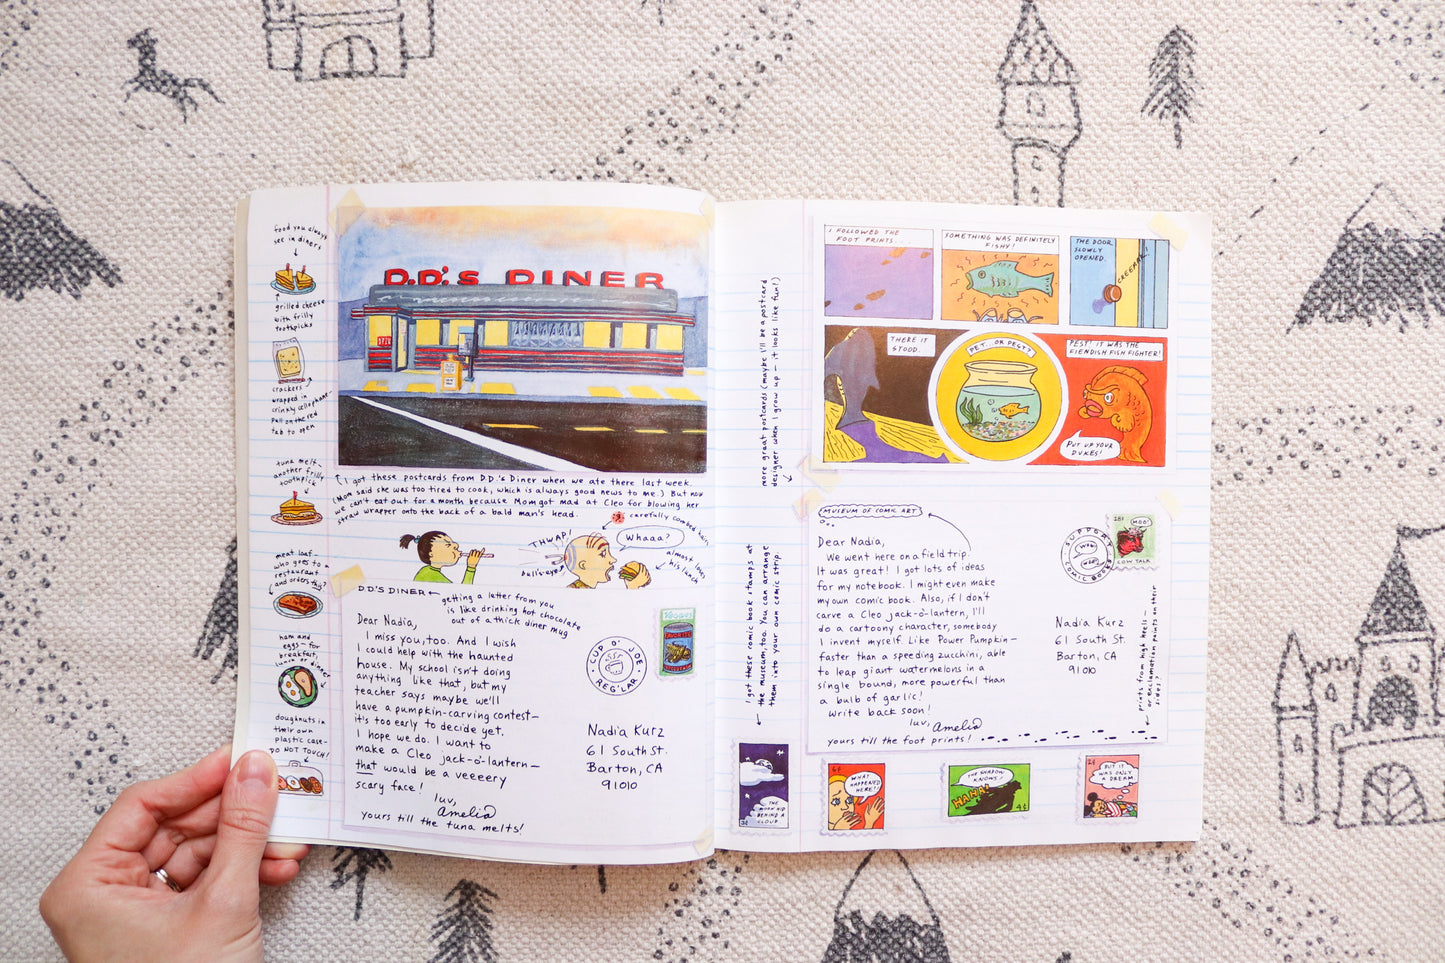 food you always
see in diners
grilled cheese
with frilly
toothpicks
crackers
wrapped in
crinkly cellophane—
pull on the red
tab to open
tuna melt—
another frilly
toothpick
meat loaf—
who goes to a
restaurant
and orders this?
ham and
eggs— for
breakfast,
lunch or dinner
doughnuts in
their own
plastic case—
DO NOT TOUCH!
D.D.'S DINER
OPEN
I got these postcards from D.D.'s Diner when we ate there last week.
(Mom said she was too tired to cook, which is always good news to me.) But now
we can't eat out for a month because Mom got mad at Cleo for blowing her
straw wrapper onto the back of a bald man's head.
carefully combed hair
THWAP!
Whaaa?
bull's-eye
almost loses
his lunch
D.D.'S DINER
getting a letter from you
is like drinking hot chocolate
out of a thick diner mug
Dear Nadia,
I miss you, too. And I wish
I could help with the haunted
house. My school isn't doing
anything like that, but my
teacher says maybe we'll
have a pumpkin-carving contest—
it's too early to decide yet.
I hope we do. I want to
make a Cleo jack-o'-lantern—
that would be a veeeery
scary face!
luv,
Amelia
yours till the tuna melts!
CUP O' JOE
REG'LAR
Nadia Kurz
61 South St.
Barton, CA
91010
more great postcards (maybe I'll be a postcard
designer when I grow up — it looks like fun!)
I FOLLOWED THE
FOOT PRINTS...
SOMETHING WAS DEFINITELY
FISHY!
THE DOOR
SLOWLY
OPENED.
CREEEAK
THERE IT
STOOD.
PET...OR PEST?
PEST! IT WAS THE
FIENDISH FISH FIGHTER!
PUT UP YOUR
DUKES!
I got these comic book stamps at
the museum, too. You can arrange
them into your own comic strip.
MUSEUM OF COMIC ART
Dear Nadia,
We went here on a field trip.
It was great! I got lots of ideas
for my notebook. I might even make
my own comic book. Also, if I don't
carve a Cleo jack-o'-lantern, I'll
do a cartoony character, somebody
I invent myself. Like Power Pumpkin—
faster than a speeding zucchini, able
to leap giant watermelons in a
single bound, more powerful than
a bulb of garlic!
Write back soon!
luv, Amelia
yours till the foot prints!
SUPPORT
COMIC BOOKS
MOO!
COW TALK
Nadia Kurz
61 South St.
Barton, CA
91010
prints from high heels—
or exclamation points on their
sides?
THE
MOON HID
BEHIND A
CLOUD.
WHAT
HAPPENED
HERE?!
THE SHADOW
KNOWS!
HAHA!
4¢
BUT IT
WAS ONLY
A DREAM